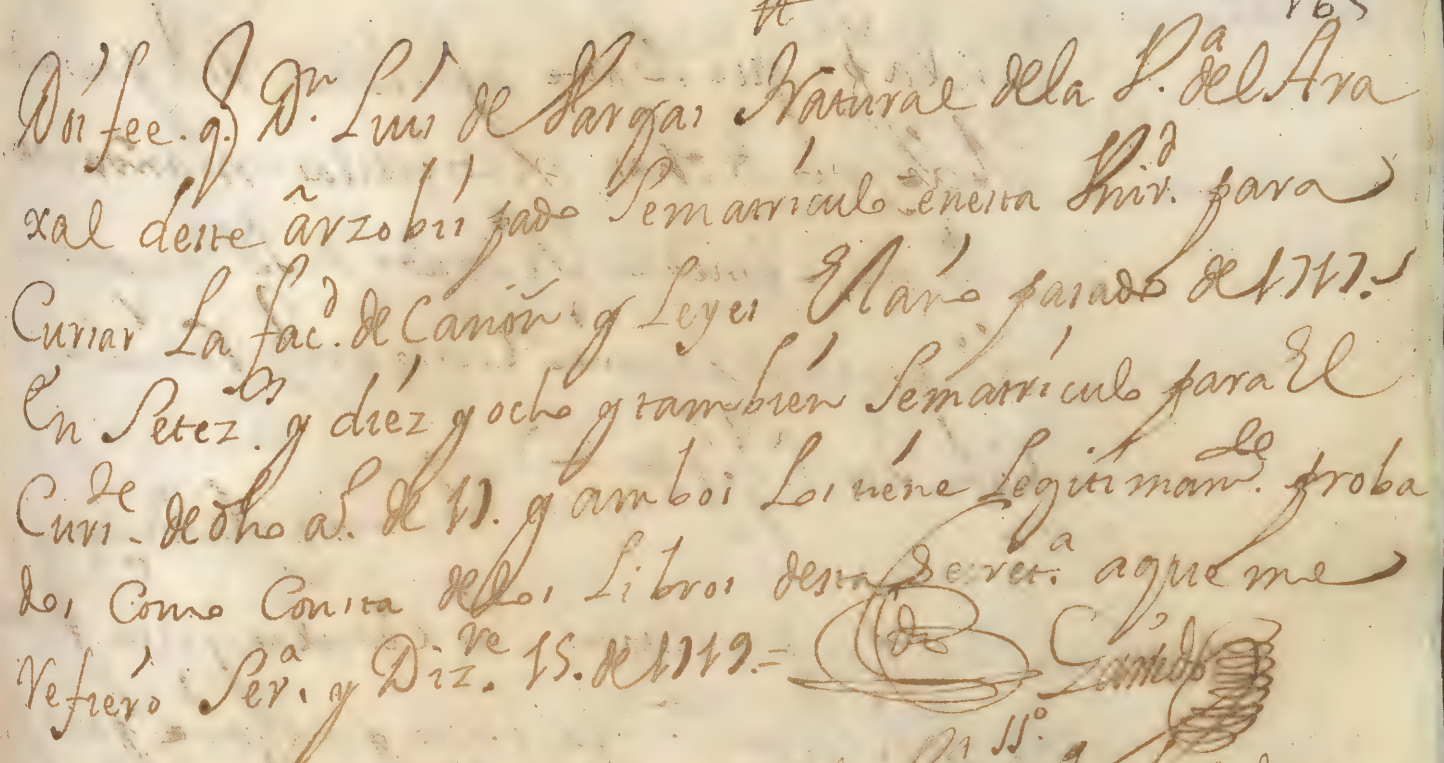 Doi fee. q.e Dn. Luis de Vargas Natural de la V.a del Ara
xal deste ârzobispado Sematriculo enesta Vnir.d para
Cursar La fac.d de Canon.s y Leyes El año pasado de 1717.
En Setez.os y diez y ocho y tambien Sematriculo para El
Curs.te de dho a.o de 19. y ambos Los tiene Legitimam.te proba
dos Como Consta delos Libros desta Secret.a aqueme
refiero Seu.a y Diz.re 15. de 1719.=
de
11º.